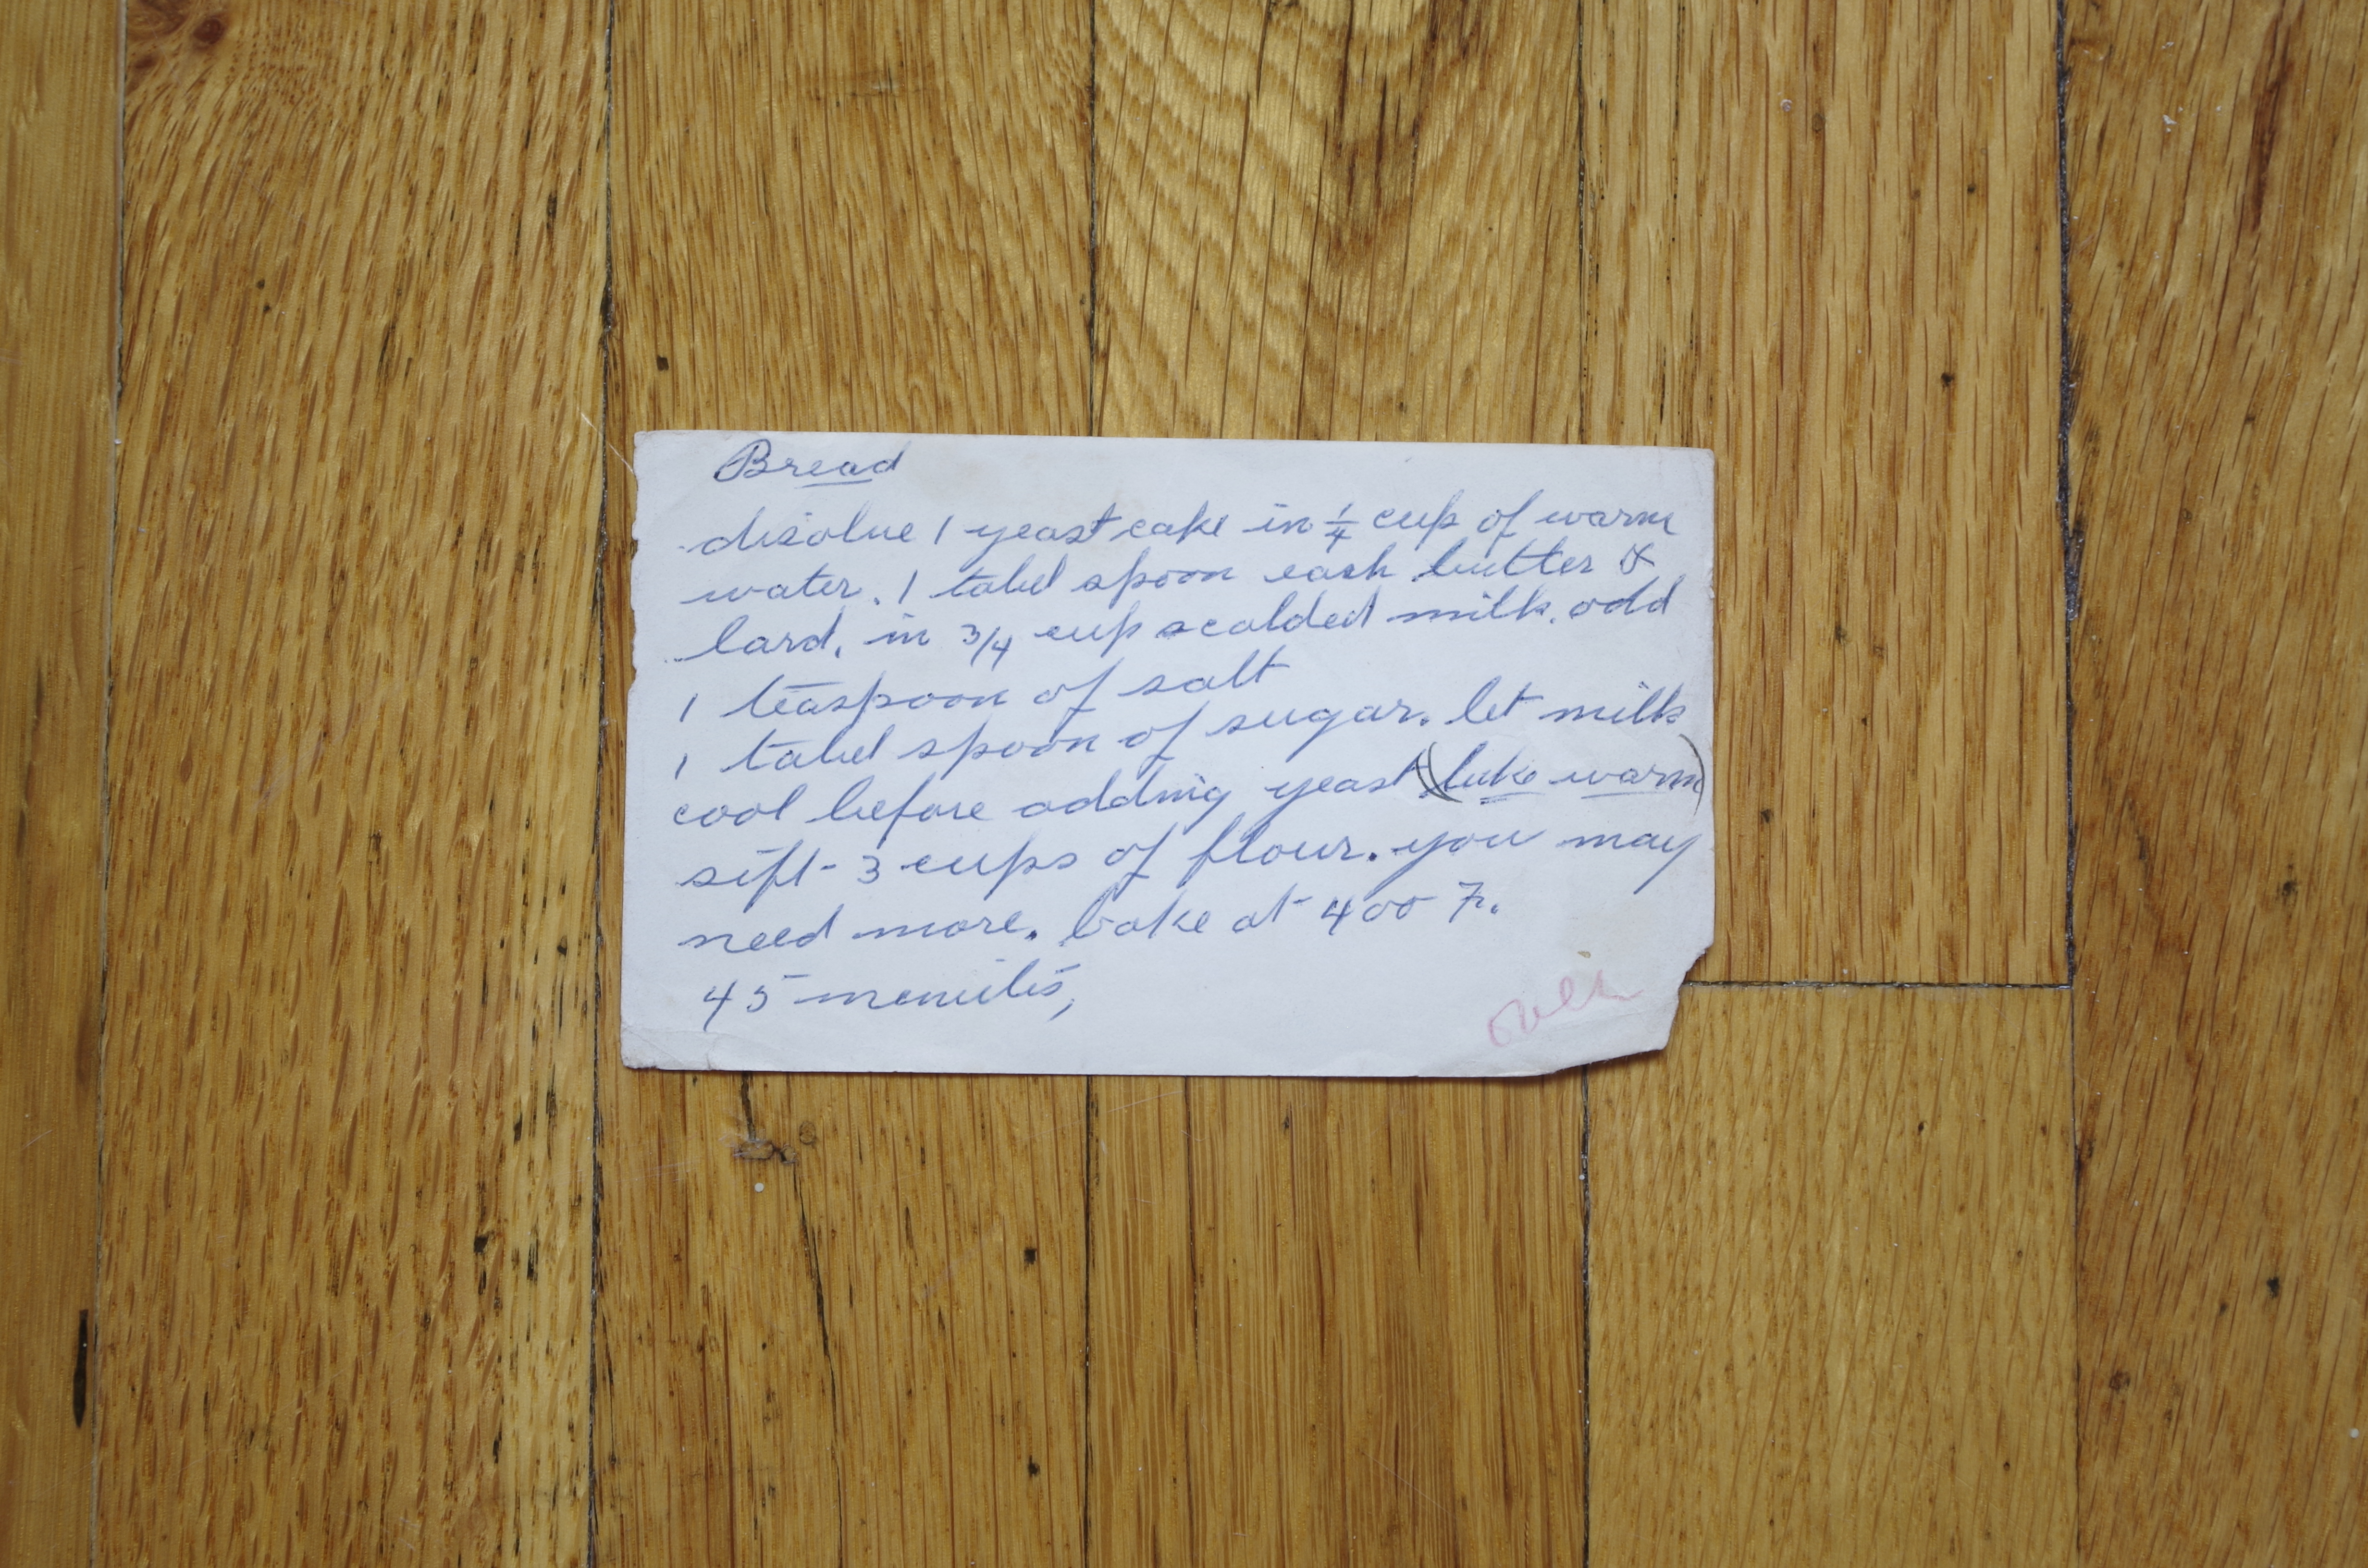 Bread
disolve 1 yeast cake in 1/4 cup of warm
water. 1 tabel spoon each butter &
lard, in 3/4 cup scalded milk. add
1 teaspoon of salt
1 tabel spoon of sugar. let milk
cool before adding yeast (luke warm)
sift 3 cups of flour. you may
need more. bake at 400 F.
45 menuites,
over